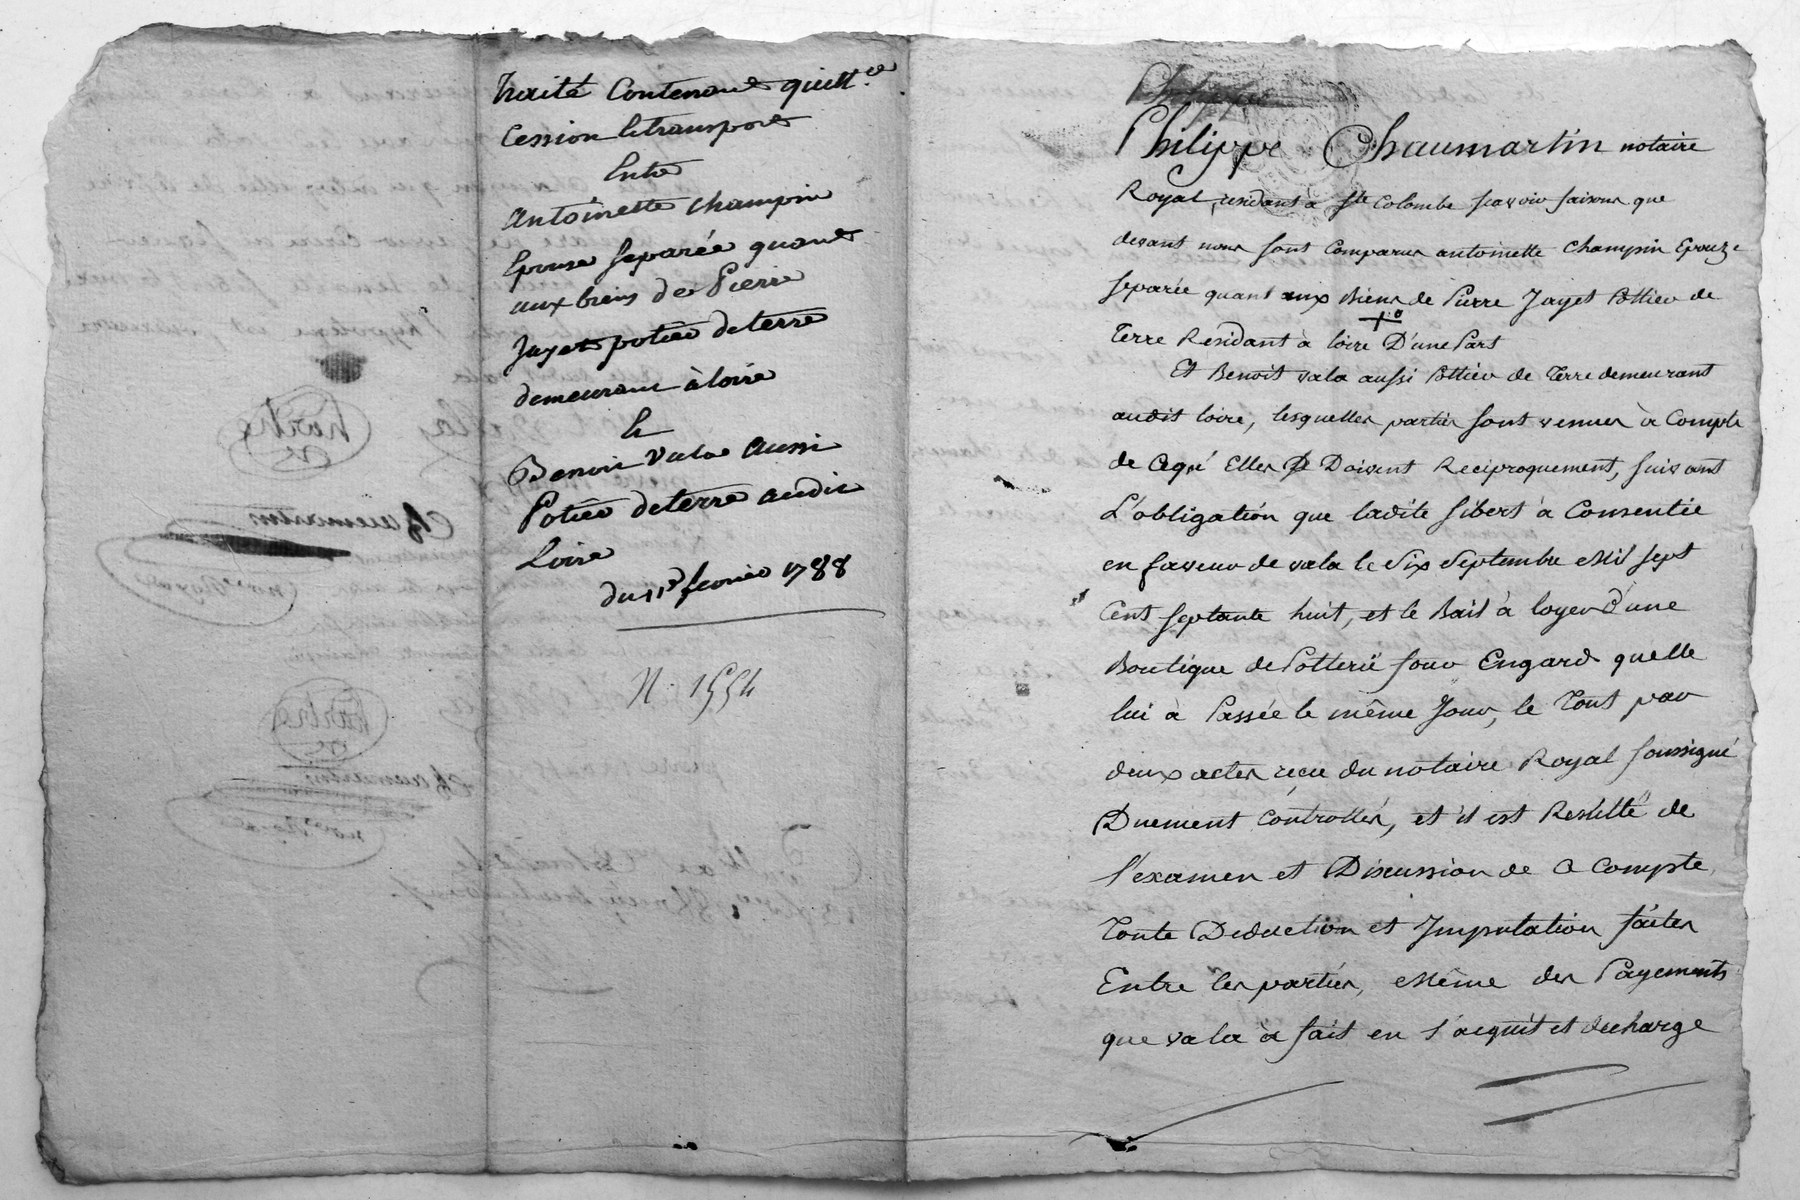 Traité Contenant quitt.ce
Cession et transport
Entre
Antoinette champin
Epouse separée quant
aux biens de Pierre
Jayet potier de terre
demeurant à loire
Et
Benoit Vala aussi
Potier de terre audit
Loire
du 11 fevrier 1788
N. 1554
Philippe Chaumartin notaire
Royal residant a Ste Colombe scavoir faisons que
devant nous sont Comparus antoinette Champin Epouze
separée quant aux Biens de Pierre Jayet Pottier de
Terre Residant à loire D'une Part
Et Benoit vala aussi Pottier de Terre demeurant
audit loire, lesquelles parties sont venues à Compte
de Elles se Doivent Reciproquement, suivant
L'obligation que ladite Sibert à Consentie
en faveur de vala le Six Septembre Mil sept
Cent septante huit, et le Bail à loyer d'une
Boutique de Potterië sous Engard quelle
lui à Passée le même Jour, le Tout par
deux actes recu du notaire Royal soussigné
Duement Controllés, et il est Resulté de
l'examen et Discussion de Ce Compte
Toute Deduction et Imputation faites
Entre les parties, Même des Payements
que vala à fait en l'acquit et decharge